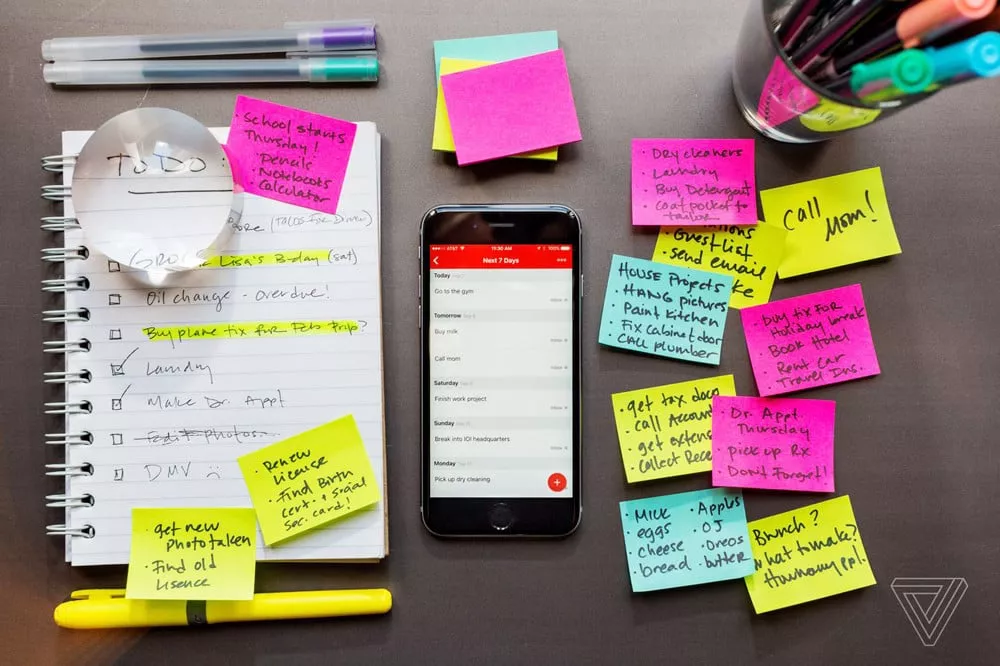 TO DO:
• School starts
Thursday!
• Pencils
• Notebooks
• Calculator
(TACOS FOR Dinner)
Lisa's B-day (sat)
Oil change - overdue!
Buy plane tix for Feb trip?
Laundry
Make Dr. Appt
Edit Photos
DMV ☹
• Renew
License
• Find Birth
cert. + Social
Sec. card!
• get new
photo taken
• Find old
Lisence
AT&T
11:30 AM
100%
Next 7 Days
Today
Go to the gym
Inbox
Tomorrow
Buy milk
Inbox
Call mom
Inbox
Saturday
Finish work project
Inbox
Sunday
Break into IOI headquarters
Inbox
Monday
Pick up dry cleaning
• Dry cleaners
• Laundry
• Buy Detergent
• Coat pocket to
tailor
call
Mom!
• Guest list
• send email
HOUSE Projects
• HANG pictures
• Paint Kitchen
• Fix Cabinet door
• CALL plumber
• Buy tix FOR
Holiday break
• Book Hotel
• Rent car
• Travel Ins.
• get tax docs
• call Account
• get extens
• Collect Rece
• Dr. Appt.
Thursday
• pick up Rx
• Don't Forget!
• MILK
• eggs
• cheese
• bread
• Apples
• OJ
• Oreos
• butter
Brunch?
What to make?
How many ppl.